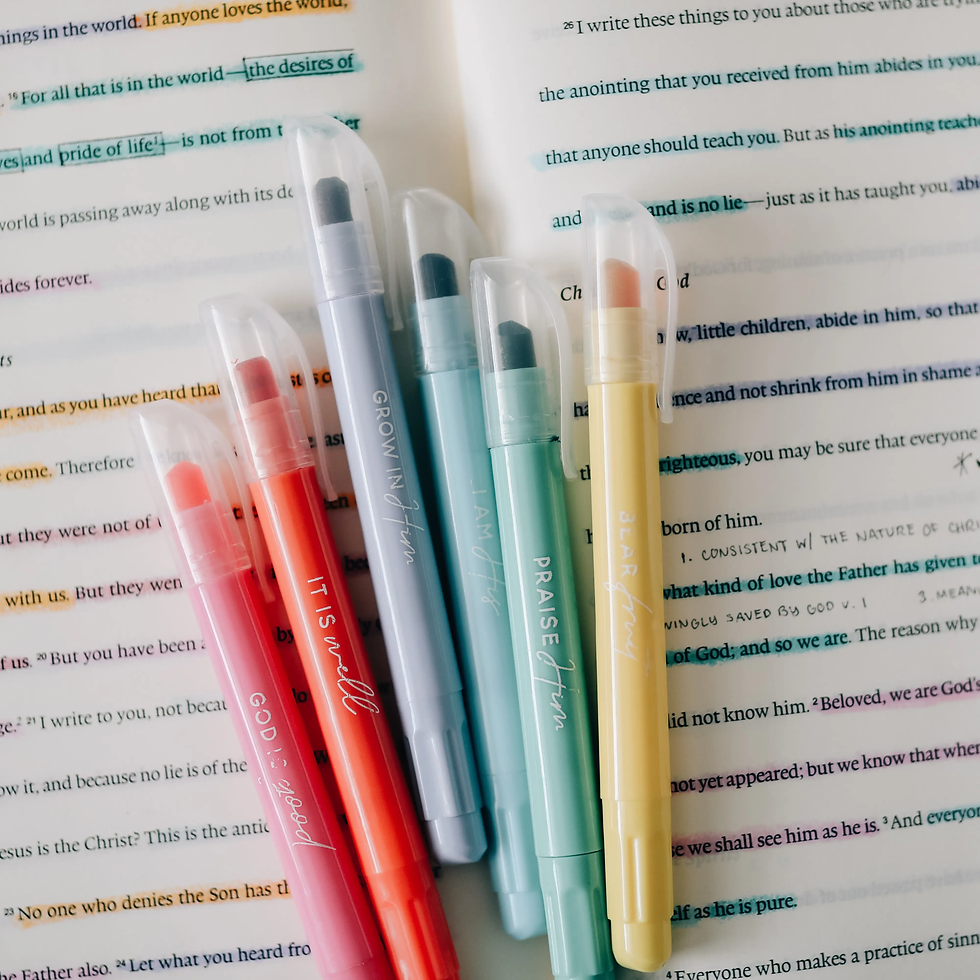 things in the world. If anyone loves the world,
15 For all that is in the world—the desires of
and pride of life1—is not from
world is passing away along with its
forever.
and as you have heard that
come. Therefore
they were not of
with us. But they
of us. 20 But you have been
21 I write to you, not
it, and because no lie is of the
is the Christ? This is the
23 No one who denies the Son has
Father also. 24 Let what you heard
GOD IS good
IT IS well
GROW IN Him
I AM His
PRAISE Him
BEAR fruit
26 I write these things to you about those who are
the anointing that you received from him abides in you,
that anyone should teach you. But as his anointing
and and is no lie—just as it has taught you,
God
little children, abide in him, so that
and not shrink from him in shame
righteous, you may be sure that everyone
born of him.
1. CONSISTENT W/ THE NATURE OF
what kind of love the Father has given
SAVED BY GOD V. 1 3.
of God; and so we are. The reason why
did not know him. 2 Beloved, we are God's
not yet appeared; but we know that when
we shall see him as he is. 3 And everyone
as he is pure.
4 Everyone who makes a practice of